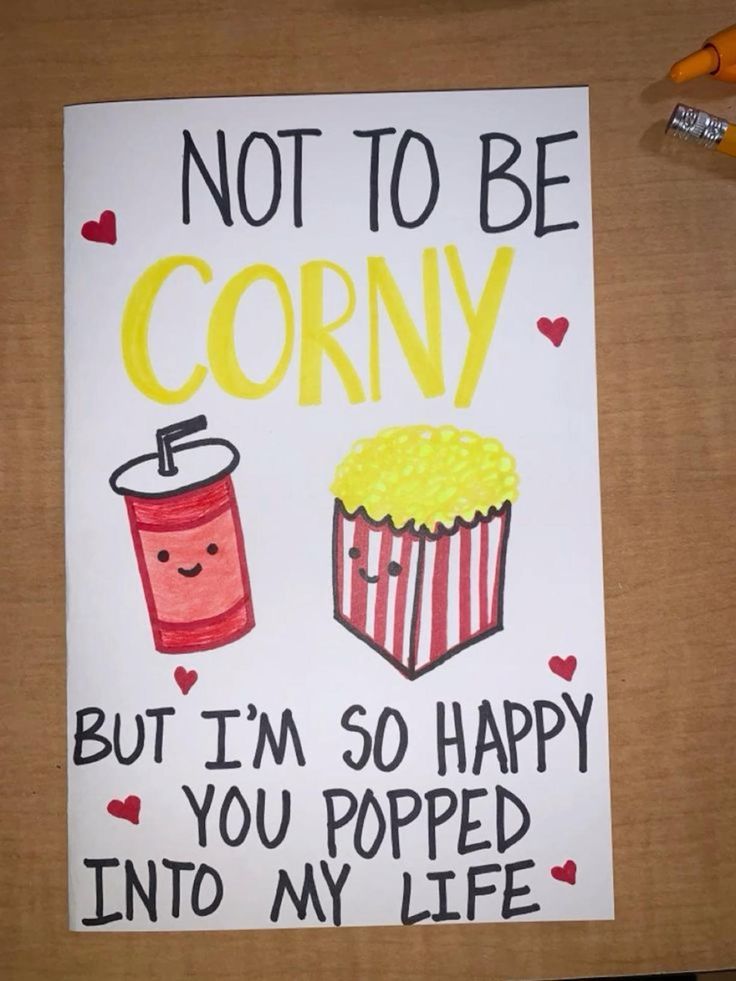 NOT TO BE
CORNY
BUT I'M SO HAPPY
YOU POPPED
INTO MY LIFE